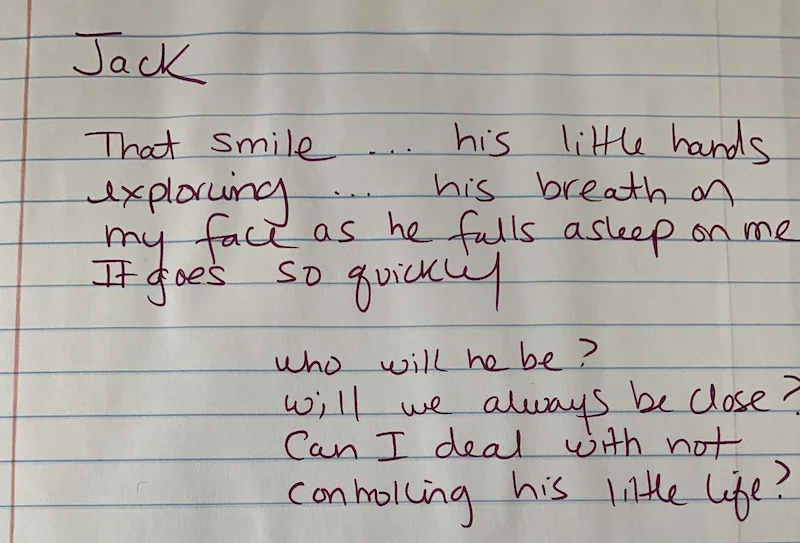 Jack
That smile ... his little hands
exploring ... his breath on
my face as he falls asleep on me
It goes so quickly
who will he be?
will we always be close?
Can I deal with not
controlling his little life?